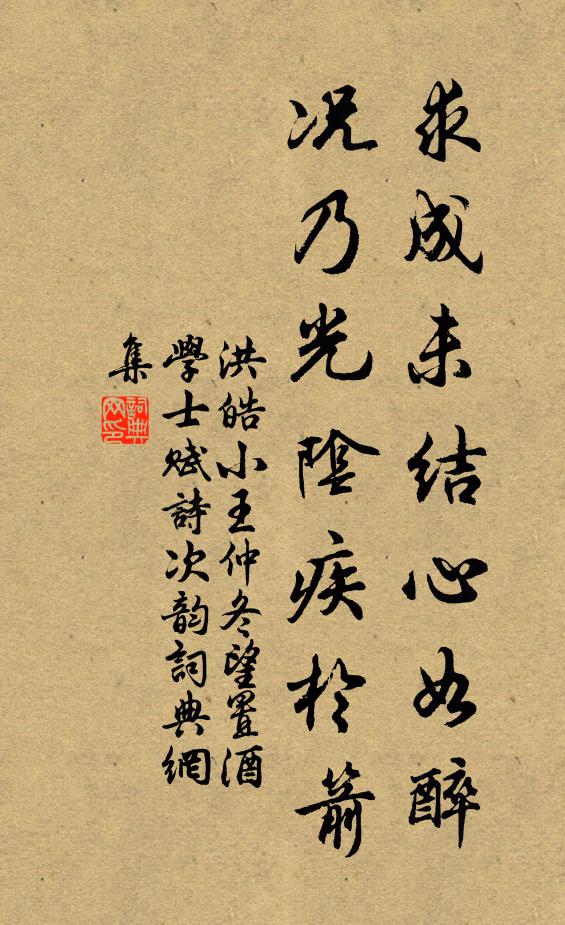 求成未结心如醉
况乃光陰疾於箭
洪皓小王仲冬望置酒
學士赋詩次韵詞典網
集
詞典
网印